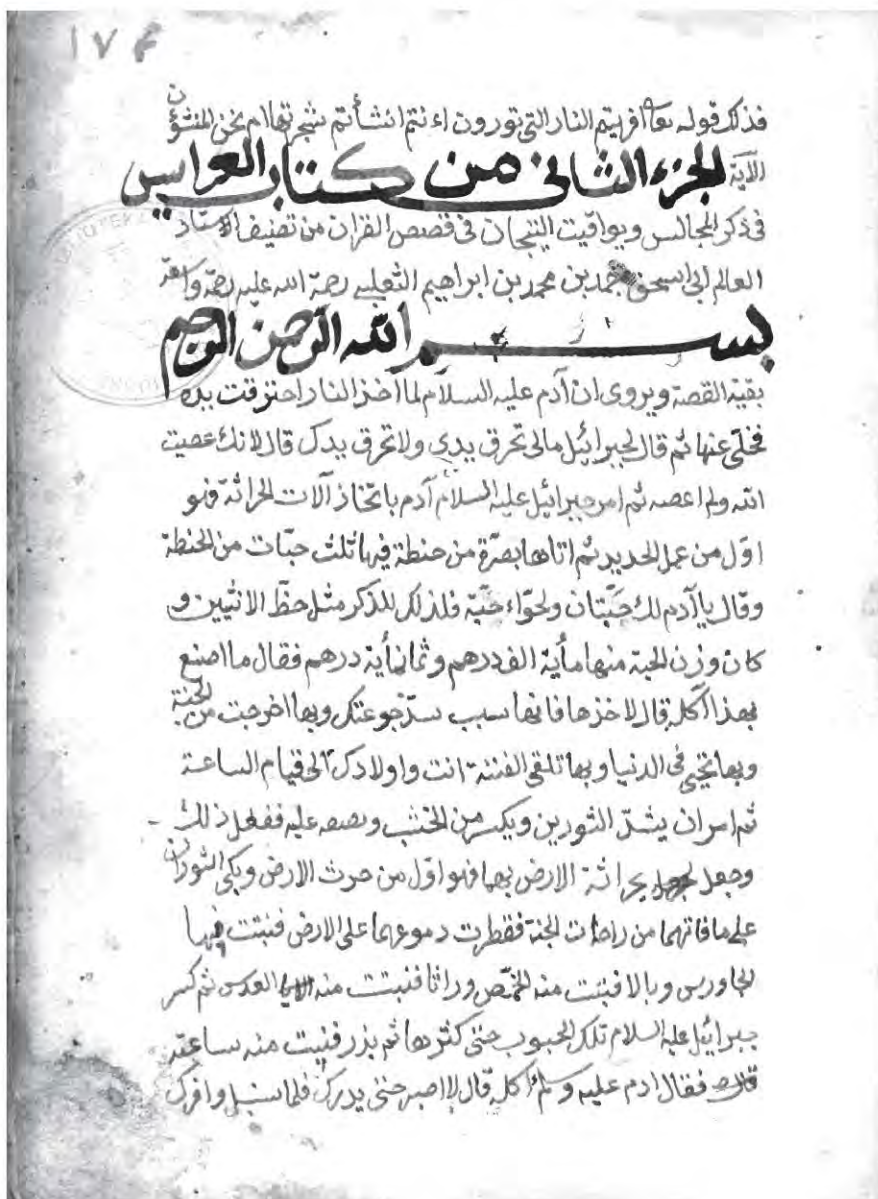 ١٧٤
فذلك قوله تعا افرايتم النار التي تورون اءنتم انشأتم شجرتها ام نحن المنشؤن
الآية الجزء الثاني من كتاب العرايس
في ذكر المجالس ويواقيت التيجان في قصص القران من تصنيف الاستاذ
العالم ابي اسحق احمد بن محمد بن ابراهيم الثعلبي رحمة الله عليه رحمة واسعة
بسم الله الرحمن الرحيم
بقية القصة ويروى ان آدم عليه السلام لما اخذ النار احترقت يده
فخلّى عنها ثم قال لجبرائيل مالي تحرق يدي ولا تحرق يدك قال لانك عصيت
الله ولم اعصه ثم امر جبرائيل عليه السلام آدم باتخاذ آلات الحراثة فهو
اوّل من عمل الحديد ثم اتاها بصرّة من حنطة فيها ثلث حبّات من الحنطة
وقال يا آدم لك حبّتان ولحوّاء حبّة فلذلك للذكر مثل حظّ الانثيين و
كان وزن الحبة منها مأية الف درهم وثمانمأية درهم فقال ما اصنع
بهذا اآكله قال لا خذها فانها سبب سدّ جوعتك وبها اخرجت من الجنة
وبها تحيى في الدنيا وبها تلقى الفتنة انت واولادك الى قيام الساعة
ثم امر ان يشدّ الثورين ويكسر من الخشب ويضعه عليه ففعل ذلك
وجعل بحراثة الارض بهما فهو اوّل من حرث الارض وبكى الثوران
على ما فاتهما من راحات الجنة فقطرت دموعهما على الارض فنبتت فيها
الجاورس وبالا فنبتت منه الحمّص وراثا فنبتت منه العدس ثم كسر
جبرائيل عليه السلام تلك الحبوب حتى كثرها ثم بذر فنبت منه ساعته
فقال ادم عليه وسلم اكله قال لا اصبر حتى يدرك فلما سنبل وافرك